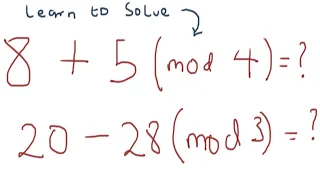 Learn to Solve
8 + 5 (mod 4) = ?
20 - 28 (mod 3) = ?